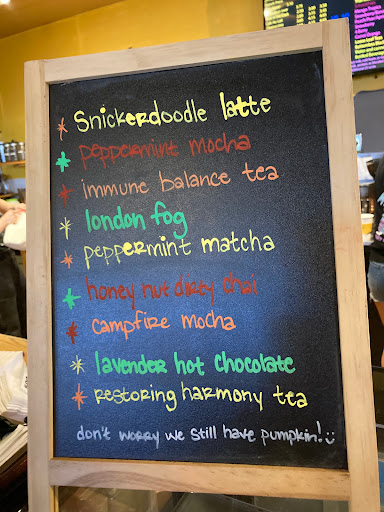 Snickerdoodle latte
peppermint mocha
immune balance tea
london fog
peppermint matcha
honey nut dirty chai
campfire mocha
lavender hot chocolate
restoring harmony tea
don't worry we still have pumpkin!